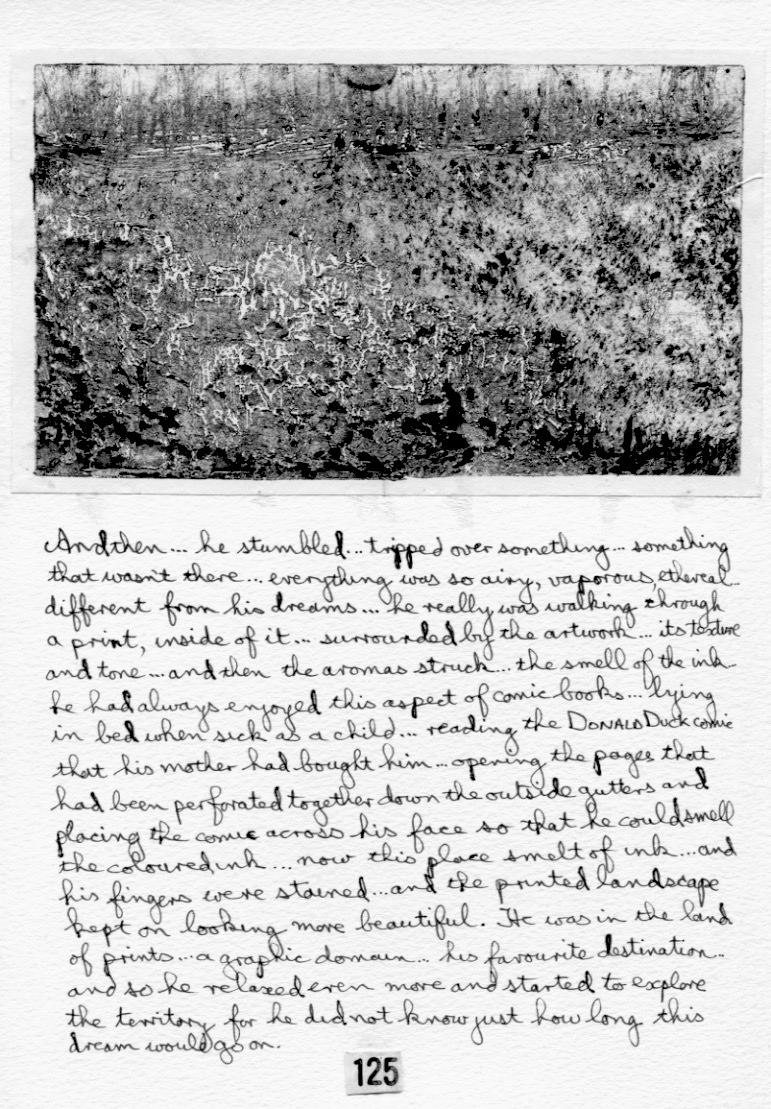 And then... he stumbled... tripped over something... something
that wasn't there... everything was so airy, vaporous, ethereal...
different from his dreams... he really was walking through
a print, inside of it... surrounded by the artwork... its texture
and tone... and then the aromas struck... the smell of the ink...
he had always enjoyed this aspect of comic books... lying
in bed when sick as a child... reading the DONALD DUCK comic
that his mother had bought him... opening the pages that
had been perforated together down the outside gutters and
placing the comic across his face so that he could smell
the coloured ink... now this place smelt of ink... and
his fingers were stained... and the printed landscape
kept on looking more beautiful. He was in the land
of prints... a graphic domain... his favourite destination...
and so he relaxed even more and started to explore
the territory for he did not know just how long this
dream would go on.
125